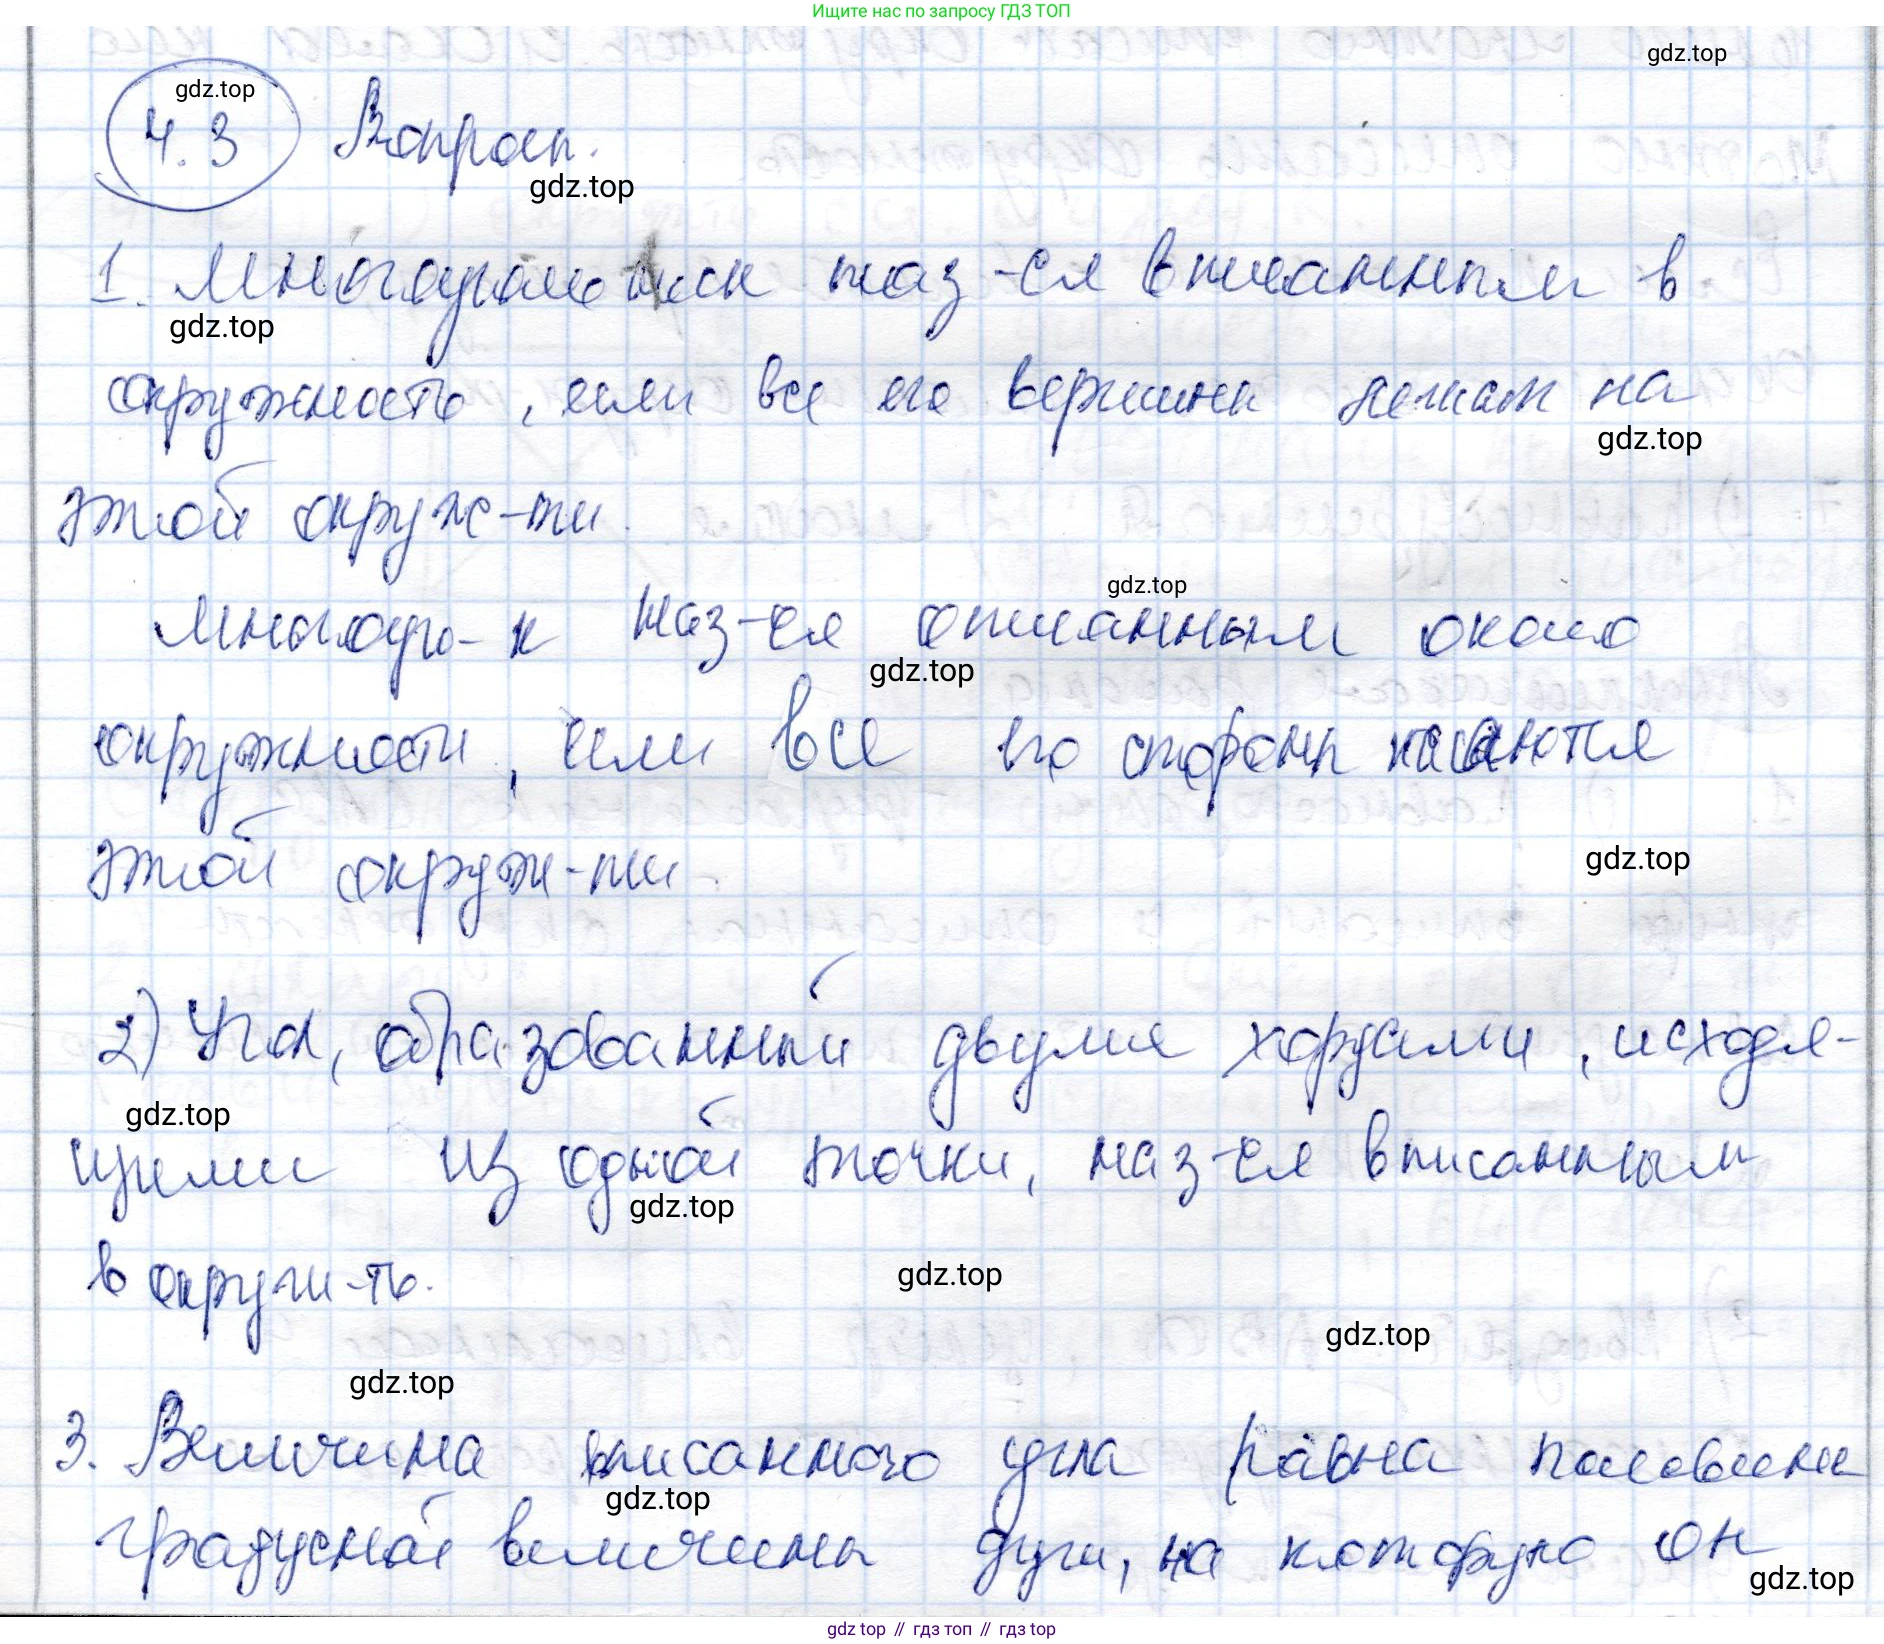 Ищите нас по запросу ГДЗ ТОП
gdz.top
gdz.top
4.3 Вопросы.
gdz.top
1. Многоугольник наз-ся вписанным в
gdz.top
окружность, если все его вершины лежат на
gdz.top
этой окруж-ти.
gdz.top
Многоуг-к наз-ся описанным около
gdz.top
окружности, если все его стороны касаются
этой окруж-ти.
gdz.top
2) Угол, образованный двумя хордами, исходя-
gdz.top
щими из одной точки, наз-ся вписанным
gdz.top
в окруж-ть.
gdz.top
gdz.top
gdz.top
3. Величина вписанного угла равна половине
gdz.top
градусной величины дуги, на которую он
gdz.top
gdz top // гдз топ // гдз top